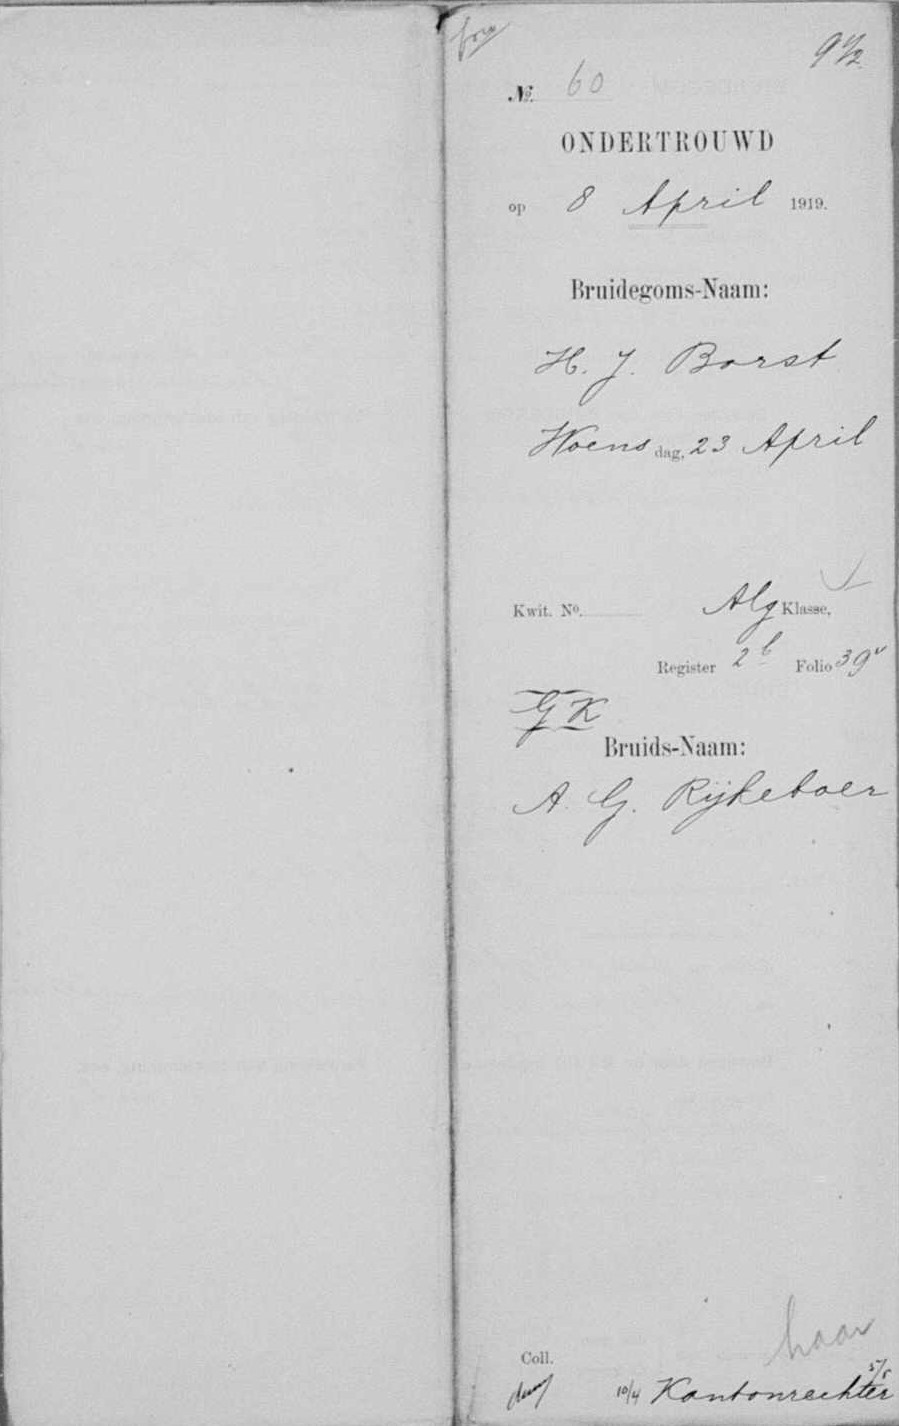 9 1/2
№. 60
ONDERTROUWD
op 8 April 1919.
Bruidegoms-Naam:
H. J. Borst
Woensdag, 23 April
Alg Klasse,
Kwit. Nº.
Register 2b Folio 39v
GK
Bruids-Naam:
A. G. Rijkeboer
haar
Coll.
5/5
10/4 Kantonrechter